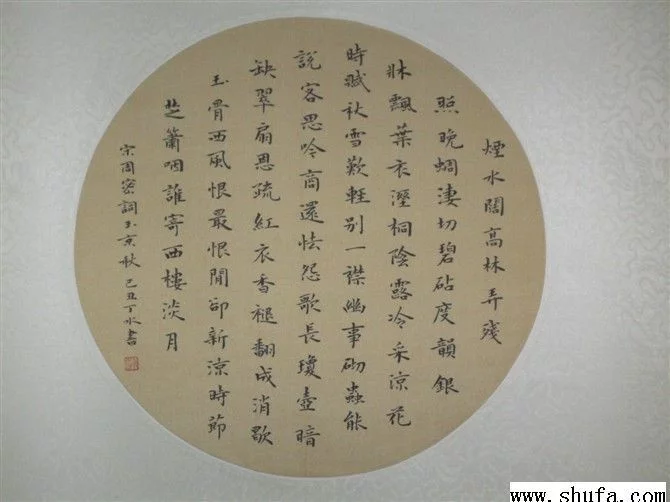 煙水闊高林弄殘
照晚蜩淒切碧砧度韻銀
牀飄葉衣溼桐陰露冷采涼花
時賦秋雪歎輕別一襟幽事砌蟲能
說客思吟商還怯怨歌長瓊壺暗
缺翠扇恩疏紅衣香褪翻成消歇
玉骨西風恨最恨閒卻新涼時節
楚簫咽誰寄西樓淡月
宋周密詞玉京秋 己丑丁水書
www.shufa.com